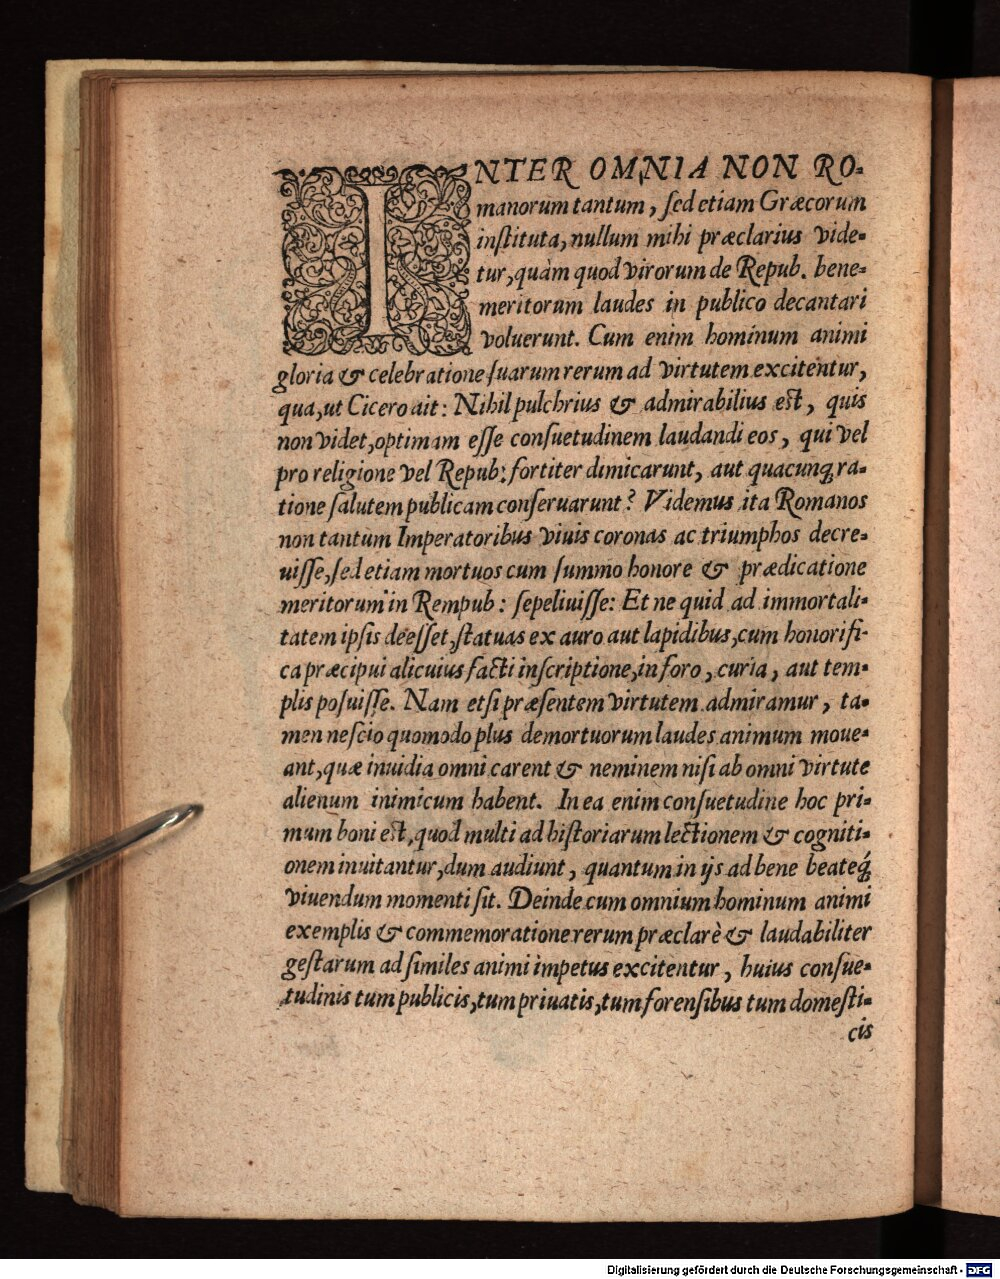 INTER OMNIA NON RO-
manorum tantum, ſed etiam Græcorum
inſtituta, nullum mihi præclarius vide-
tur, quàm quod virorum de Repub. bene-
meritorum laudes in publico decantari
voluerunt. Cum enim hominum animi
gloria & celebratione ſuarum rerum ad virtutem excitentur,
qua, ut Cicero ait: Nihil pulchrius & admirabilius eſt, quis
non videt, optimam eſſe conſuetudinem laudandi eos, qui vel
pro religione vel Repub: fortiter dimicarunt, aut quacunq; ra-
tione ſalutem publicam conſeruarunt? Videmus ita Romanos
non tantum Imperatoribus viuis coronas ac triumphos decre-
uiſſe, ſed etiam mortuos cum ſummo honore & prædicatione
meritorum in Rempub: ſepeliuiſſe: Et ne quid ad immortali-
tatem ipſis deeſſet, ſtatuas ex auro aut lapidibus, cum honorifi-
ca præcipui alicuius facti inſcriptione, in foro, curia, aut tem-
plis poſuiſſe. Nam etſi præſentem virtutem admiramur, ta-
men neſcio quomodo plus demortuorum laudes animum moue-
ant, quæ inuidia omni carent & neminem niſi ab omni virtute
alienum inimicum habent. In ea enim conſuetudine hoc pri-
mum boni eſt, quod multi ad hiſtoriarum lectionem & cogniti-
onem inuitantur, dum audiunt, quantum in ijs ad bene beateq́;
viuendum momenti ſit. Deinde cum omnium hominum animi
exemplis & commemoratione rerum præclarè & laudabiliter
geſtarum ad ſimiles animi impetus excitentur, huius conſue-
tudinis tum publicis, tum priuatis, tum forenſibus tum domeſti-
cis
Digitalisierung gefördert durch die Deutsche Forschungsgemeinschaft - DFG